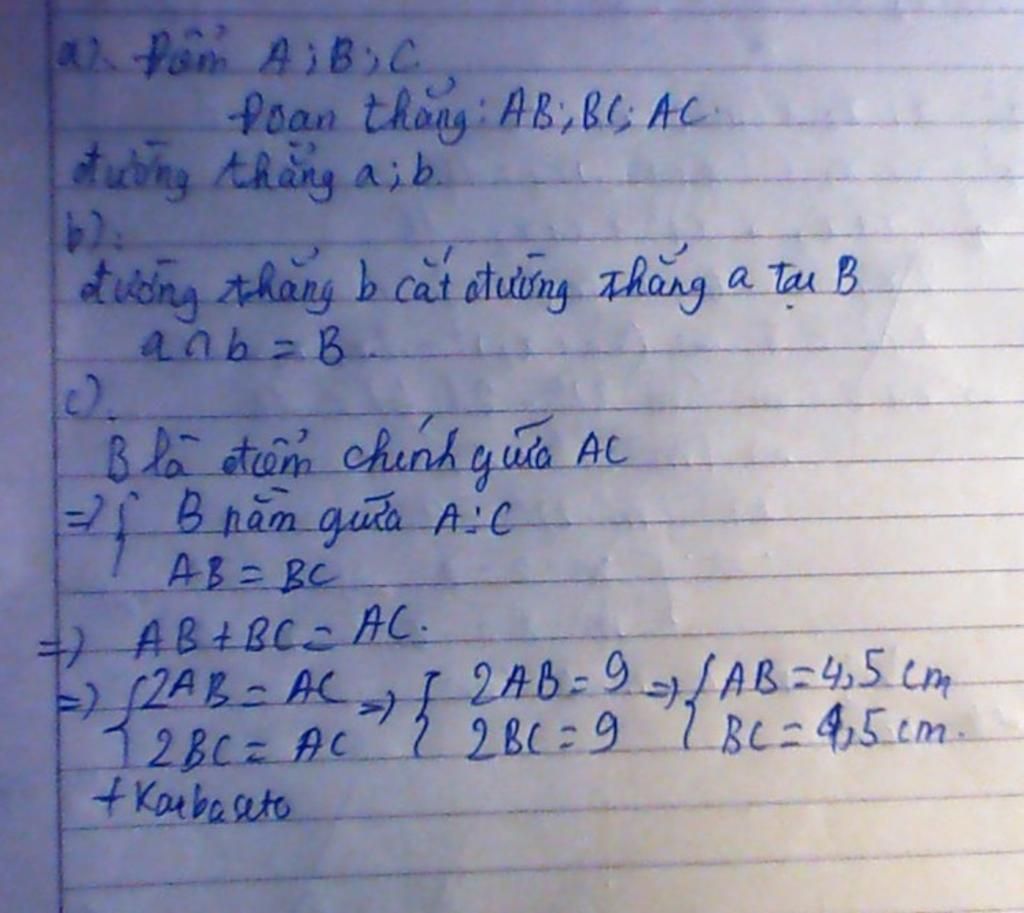 a). Điểm A; B; C.
Đoạn thẳng: AB; BC; AC
đường thẳng a; b.
b).
đường thẳng b cắt đường thẳng a tại B
a ∩ b = B.
c).
B là điểm chính giữa AC
=> { B nằm giữa A; C
AB = BC
=> AB + BC = AC.
=> { 2AB = AC => { 2AB = 9 => { AB = 4,5 cm
2BC = AC 2BC = 9 BC = 4,5 cm.